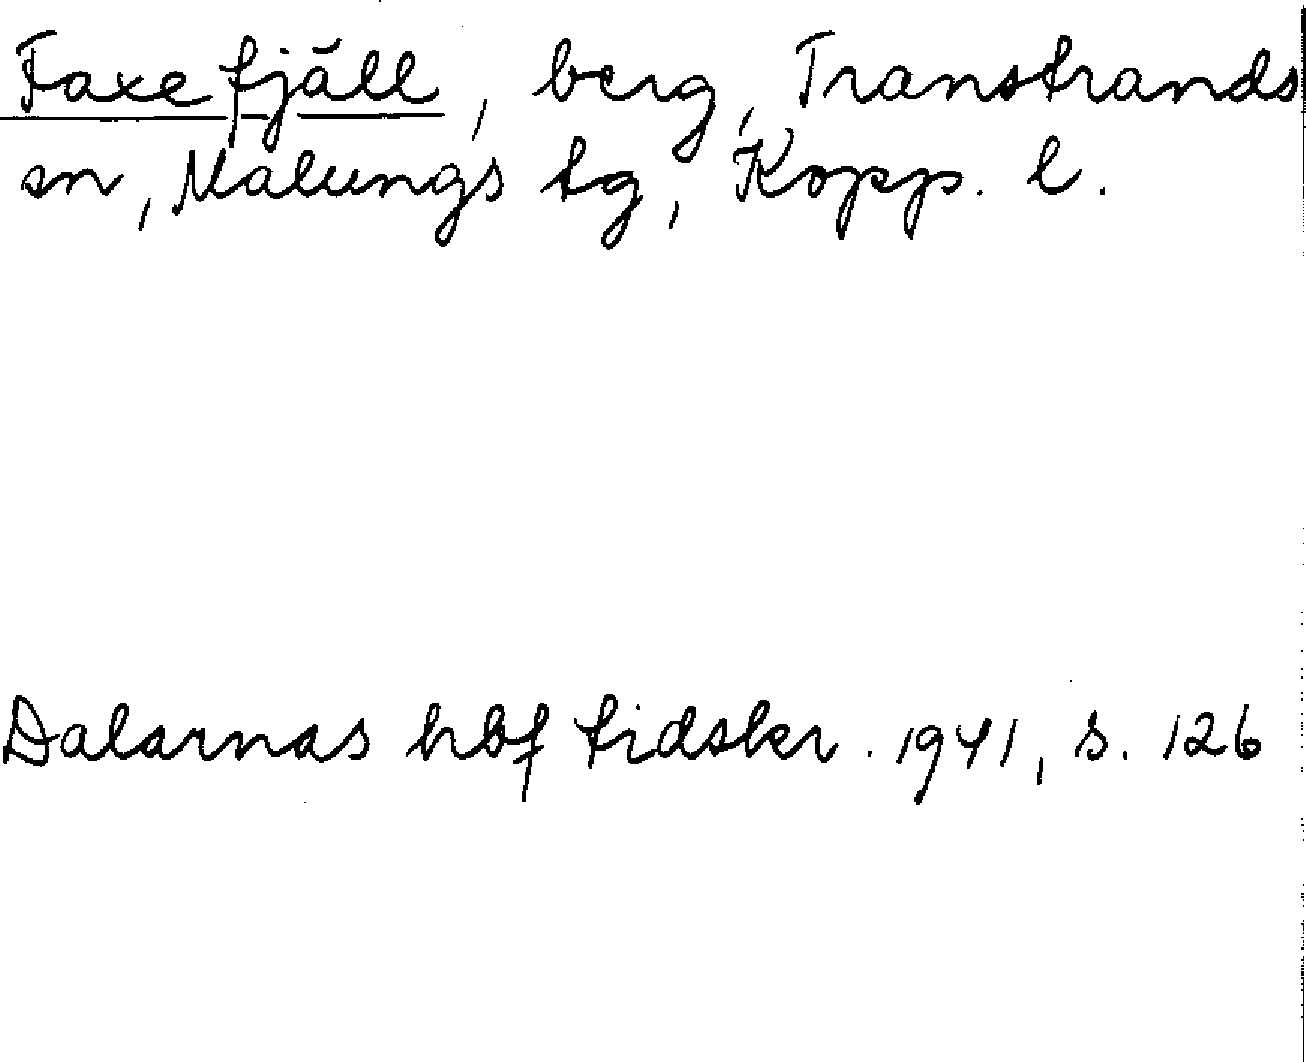 Faxefjäll, berg, Transtrands
sn, Malungs tg, Kopp. l.
Dalarnas hbf tidskr. 1941, s. 126